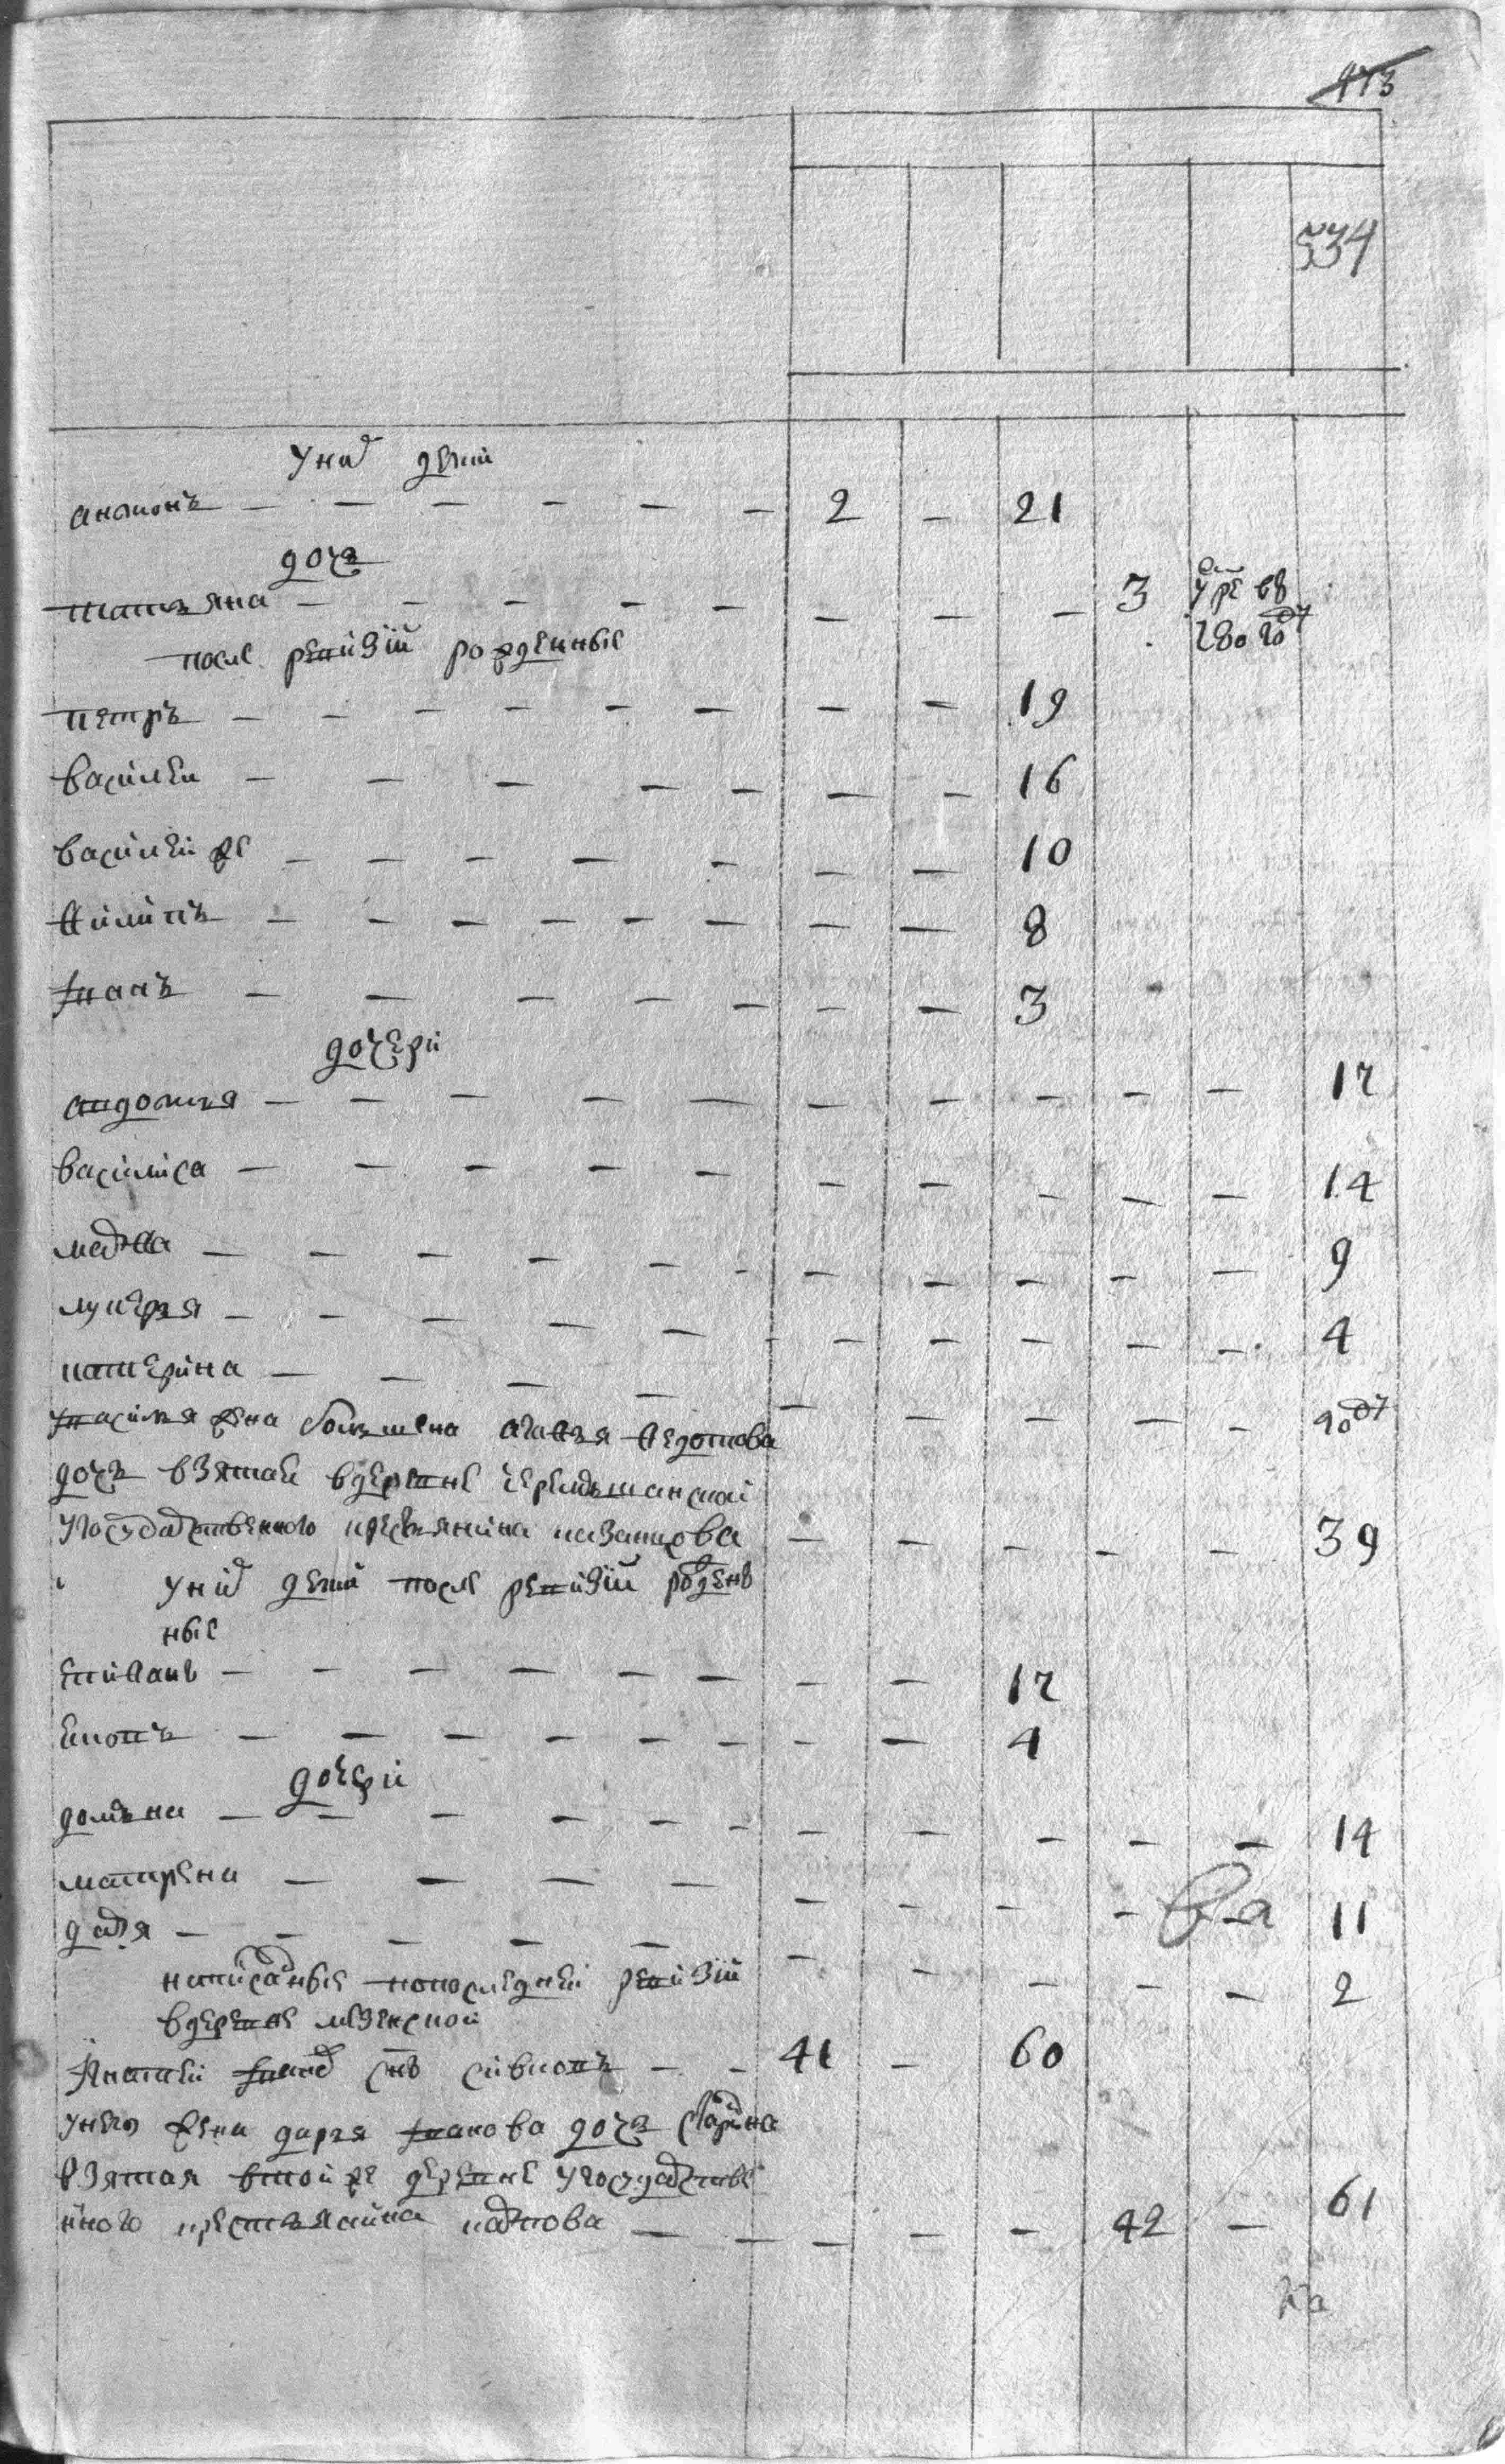 473
534
у них дети
антонъ — — — — — — 2 — 21
дочь
татьяна — — — — — — — — 3 умре въ
780 году
после ревизiи рожденные
петръ — — — — — — — — 19
василеи — — — — — — — 16
василеи же — — — — — — — 10
филипъ — — — — — — — — 8
иванъ — — — — — — — 3
дочери
авдотья — — — — — — — — — — 12
василиса — — — — — — — — — — 14
марфа — — — — — — — — — — — 9
лукерья — — — — — — — — — — — 4
катерина — — — — — — — — — году
у василья жена большева агафья федотова
дочь взятая в деревне черемшанской
у государственного крестьянина казанцова — — — — — 39
у них дети после ревизiи рожден
ные
епифанъ — — — — — — — — 12
антонъ — — — — — — — — 4
дочери
домъна — — — — — — — — — — — 14
матрена — — — — — — — — 11
дарья — — — — — — — — — — 2
написанные по последней ревизiи
в деревне
игнатеи иванов снъ — — 41 — 60
у него жена дарья дочь
взятая в той же деревне у государстве
нного крестьянина — — — — — 42 — 61